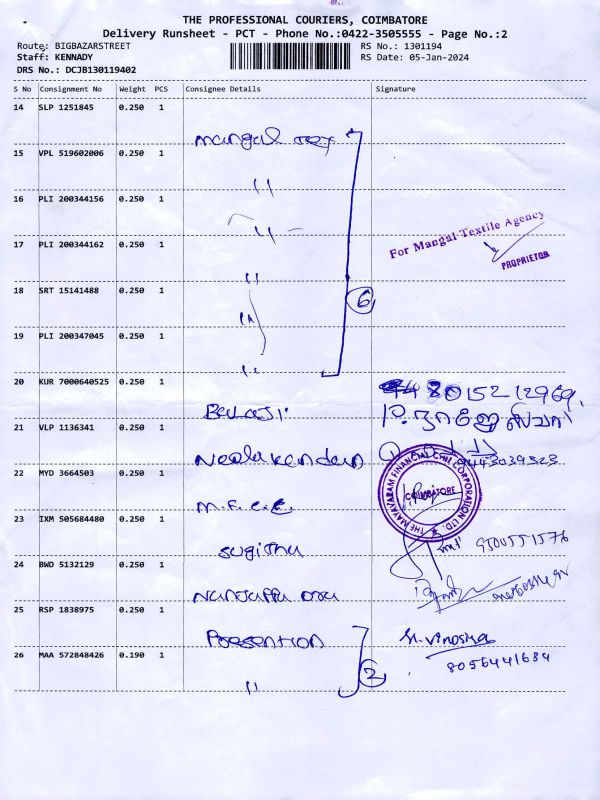 THE PROFESSIONAL COURIERS, COIMBATORE
Delivery Runsheet - PCT - Phone No.:0422-3505555 - Page No.:2
Route: BIGBAZARSTREET
RS No.: 1301194
Staff: KENNADY
RS Date: 05-Jan-2024
DRS No.: DCJB130119402
S No Consignment No Weight PCS Consignee Details Signature
14 SLP 1251845 0.250 1
mangal tex
15 VPL 519602006 0.250 1
"
16 PLI 200344156 0.250 1
"
For Mangal Textile Agency
PROPRIETOR
17 PLI 200344162 0.250 1
"
18 SRT 15141488 0.250 1
"
6
19 PLI 200347045 0.250 1
"
20 KUR 7000640525 0.250 1
Balaji
21 VLP 1136341 0.250 1
Neelakandan
9443039323
22 MYD 3664503 0.250 1
M.F.C.C.
THE MAYAVARAM FINANCIAL CHIT CORPORATION LTD.
COIMBATORE
23 IXM 505684480 0.250 1
Sugithu
9500551576
24 BWD 5132129 0.250 1
Nunjappa
25 RSP 1838975 0.250 1
2
M.Vinosha
8056441684
26 MAA 572848426 0.190 1
"